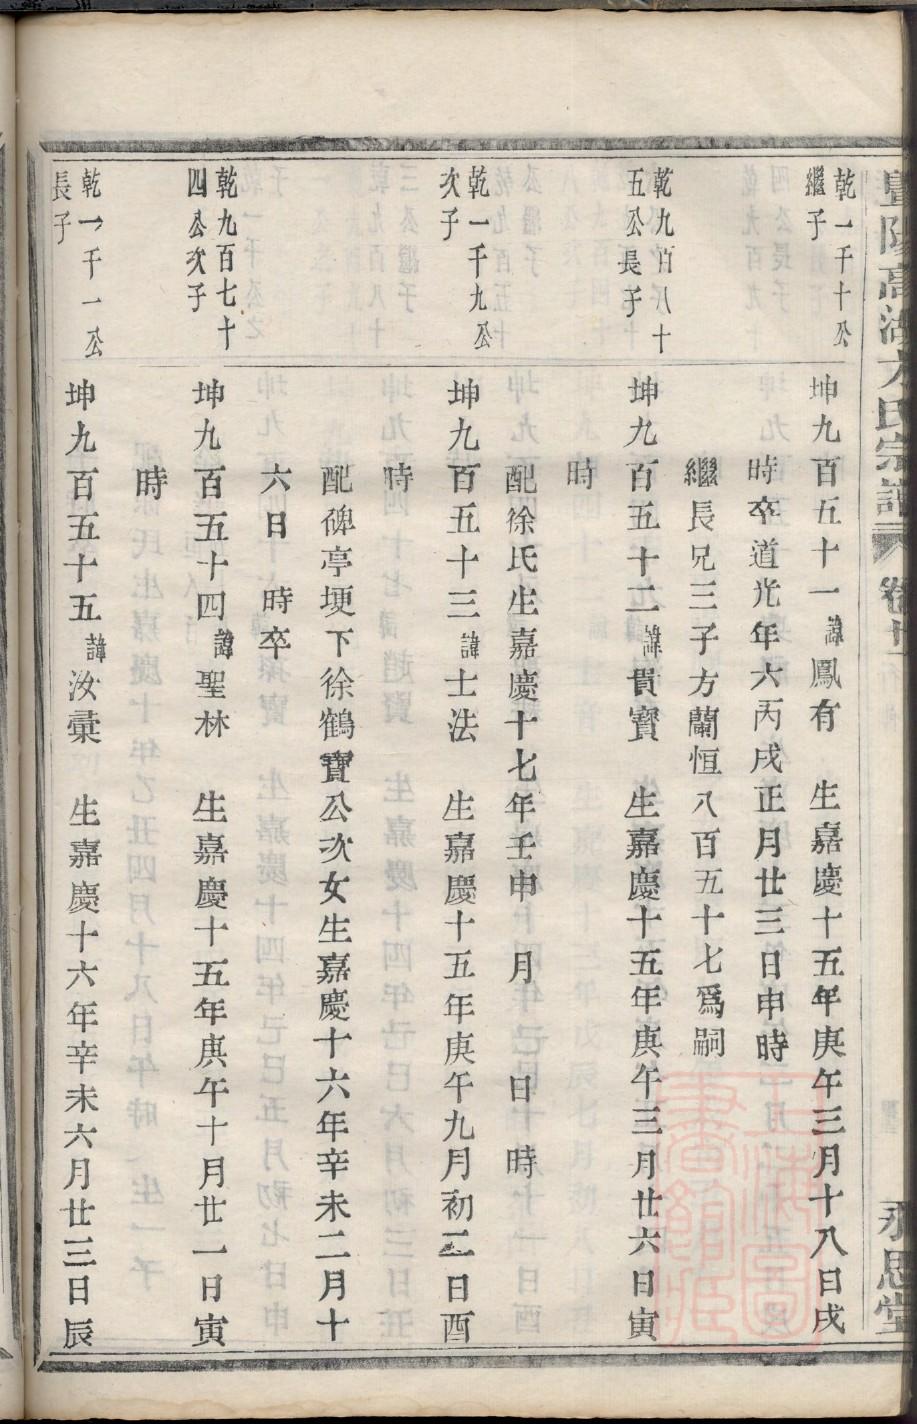 暨陽高湖方氏宗譜 卷廿 永思堂
乾一千十公
繼子
坤九百五十一諱鳳有 生嘉慶十五年庚午三月十八日戌
時卒道光年六丙戌正月廿三日申時
繼長兄三子方蘭恒八百五十七為嗣
乾九百八十
五公長子
坤九百五十二諱貫寶 生嘉慶十五年庚午三月廿六日寅
時
配徐氏生嘉慶十七年壬申 月 日 時
乾一千九公
次子
坤九百五十三諱士法 生嘉慶十五年庚午九月初二日酉
時
配碑亭埂下徐鶴寶公次女生嘉慶十六年辛未二月十
六日 時卒
乾九百七十
四公次子
坤九百五十四諱聖林 生嘉慶十五年庚午十月廿一日寅
時
乾一千一公
長子
坤九百五十五諱汝彙 生嘉慶十六年辛未六月廿三日辰